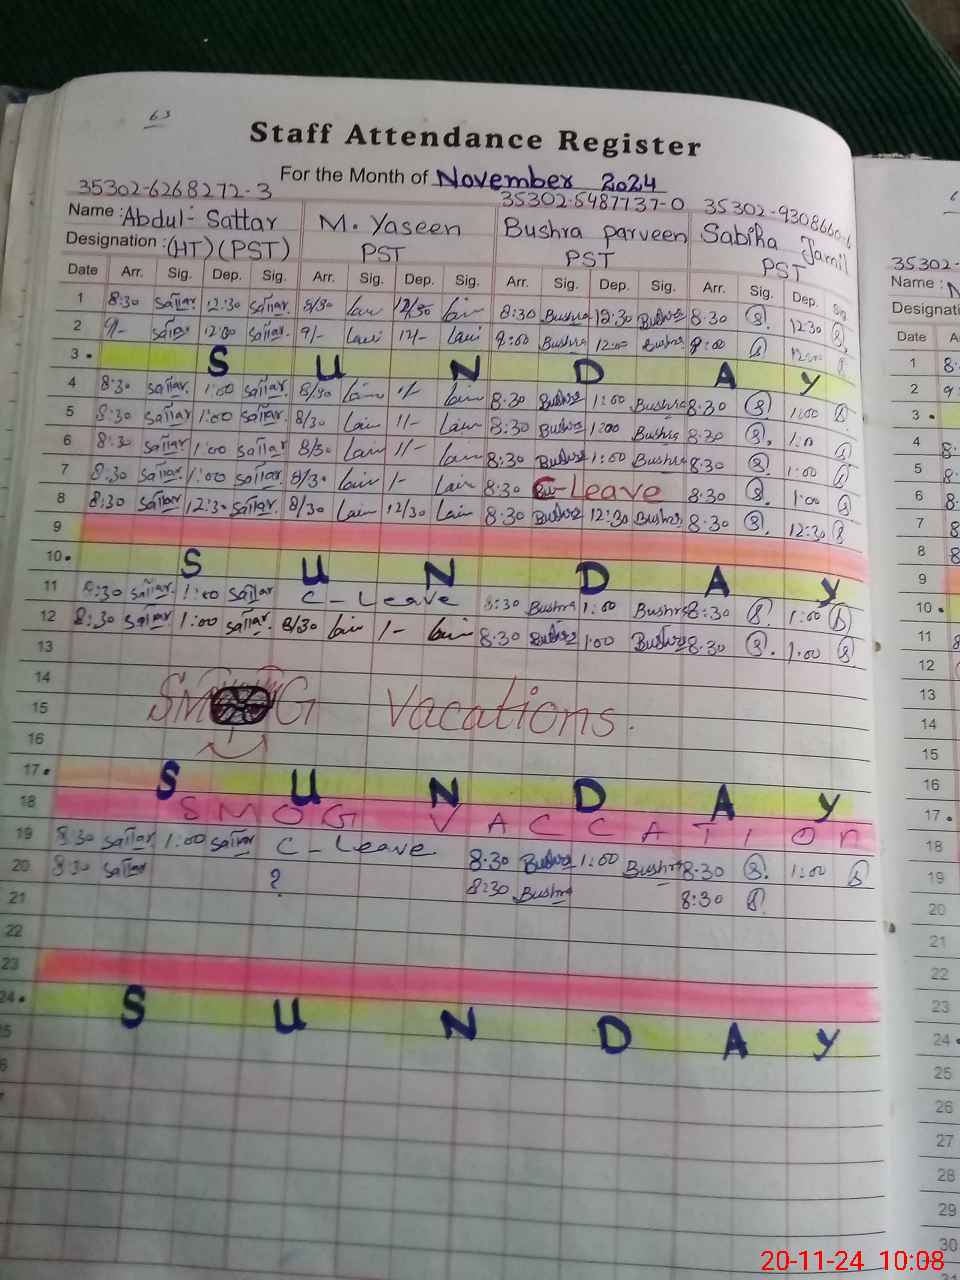 63
Staff Attendance Register
For the Month of November 2024
35302-6268272-3 35302-5487737-0 35302-9308660-6
Name : Abdul-Sattar M. Yaseen Bushra parveen Sabiha Jamil
Designation : (HT) (PST) PST PST PST
Date Arr. Sig. Dep. Sig. Arr. Sig. Dep. Sig. Arr. Sig. Dep. Sig. Arr. Sig. Dep. Sig.
1 8:30 Sattar 12:30 Sattar 8/30 12/30 8:30 Bushra 12:30 Bushra 8:30 S. 12:30 S.
2 9/- Sattar 12:00 Sattar 9/- 12/- 9:00 Bushra 12:00 Bushra 9:00 S 12:00 S
3 • S U N D A Y
4 8:30 Sattar 1:00 Sattar 8/30 1/- 8:30 Bushra 1:00 Bushra 8:30 S 1:00 S
5 8:30 Sattar 1:00 Sattar 8/30 1/- 8:30 Bushra 1:00 Bushra 8:30 S. 1:0 S
6 8:30 Sattar 1:00 Sattar 8/30 1/- 8:30 Bushra 1:00 Bushra 8:30 S. 1:00 S
7 8:30 Sattar 1:00 Sattar 8/30 1- 8:30 C-Leave 8:30 S. 1:00 S
8 8:30 Sattar 12:30 Sattar 8/30 12/30 8:30 Bushra 12:30 Bushra 8:30 S. 12:30 S
9
10 • S U N D A Y
11 8:30 Sattar 1:00 Sattar C-Leave 8:30 Bushra 1:00 Bushra 8:30 S. 1:00 S
12 8:30 Sattar 1:00 Sattar 8/30 1- 8:30 Bushra 1:00 Bushra 8:30 S. 1:00 S
13
14
15 SMOG Vacations.
16
17 • S U N D A Y
18 S M O G V A C C A T I O n
19 8:30 Sattar 1:00 Sattar C-Leave 8:30 Bushra 1:00 Bushra 8:30 S. 1:00 S
20 8:30 Sattar ? 8:30 Bushra 8:30 S
21
22
23
24 • S U N D A Y
5
6
35302-
Name :
Designati
Date A
1 8:
2 9
3 •
4 8:
5 8:
6 8:
7 8
8 8
9
10 •
11
12
13
14
15
16
17 •
18
19
20
21
22
23
24 •
25
26
27
28
29
30
20-11-24 10:08